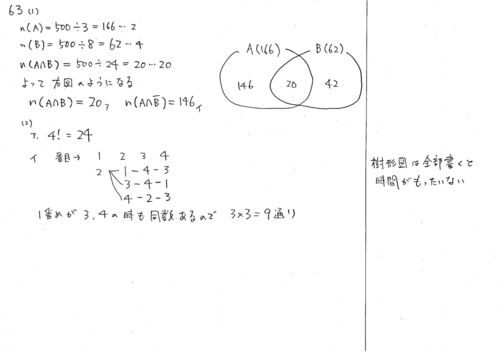 63 (1)
n(A) = 500÷3 = 166…2
n(B) = 500÷8 = 62…4
n(A∩B) = 500÷24 = 20…20
よって右図のようになる
n(A∩B) = 20, n(A∩B̅) = 146,
A(166) B(62)
146 20 42
(2)
ア. 4! = 24
イ 番目→ 1 2 3 4
2 1-4-3
3-4-1
4-2-3
1番めが 3, 4の時も同数あるので 3×3=9通り
樹形図は全部書くと
時間がもったいない